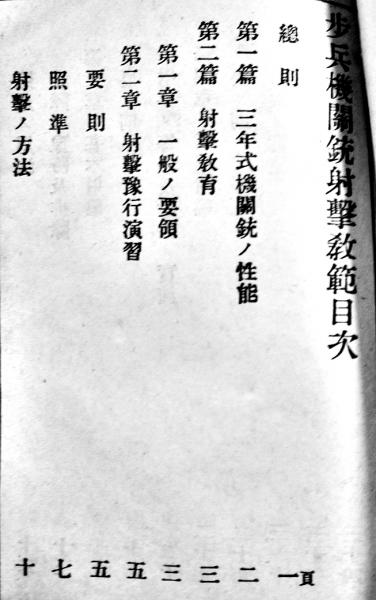 步兵機關銃射擊敎範目次
總則 一頁
第一篇 三年式機關銃ノ性能 二
第二篇 射擊敎育 三
第一章 一般ノ要領 三
第二章 射擊豫行演習 五
要則 五
照準 七
射擊ノ方法 十